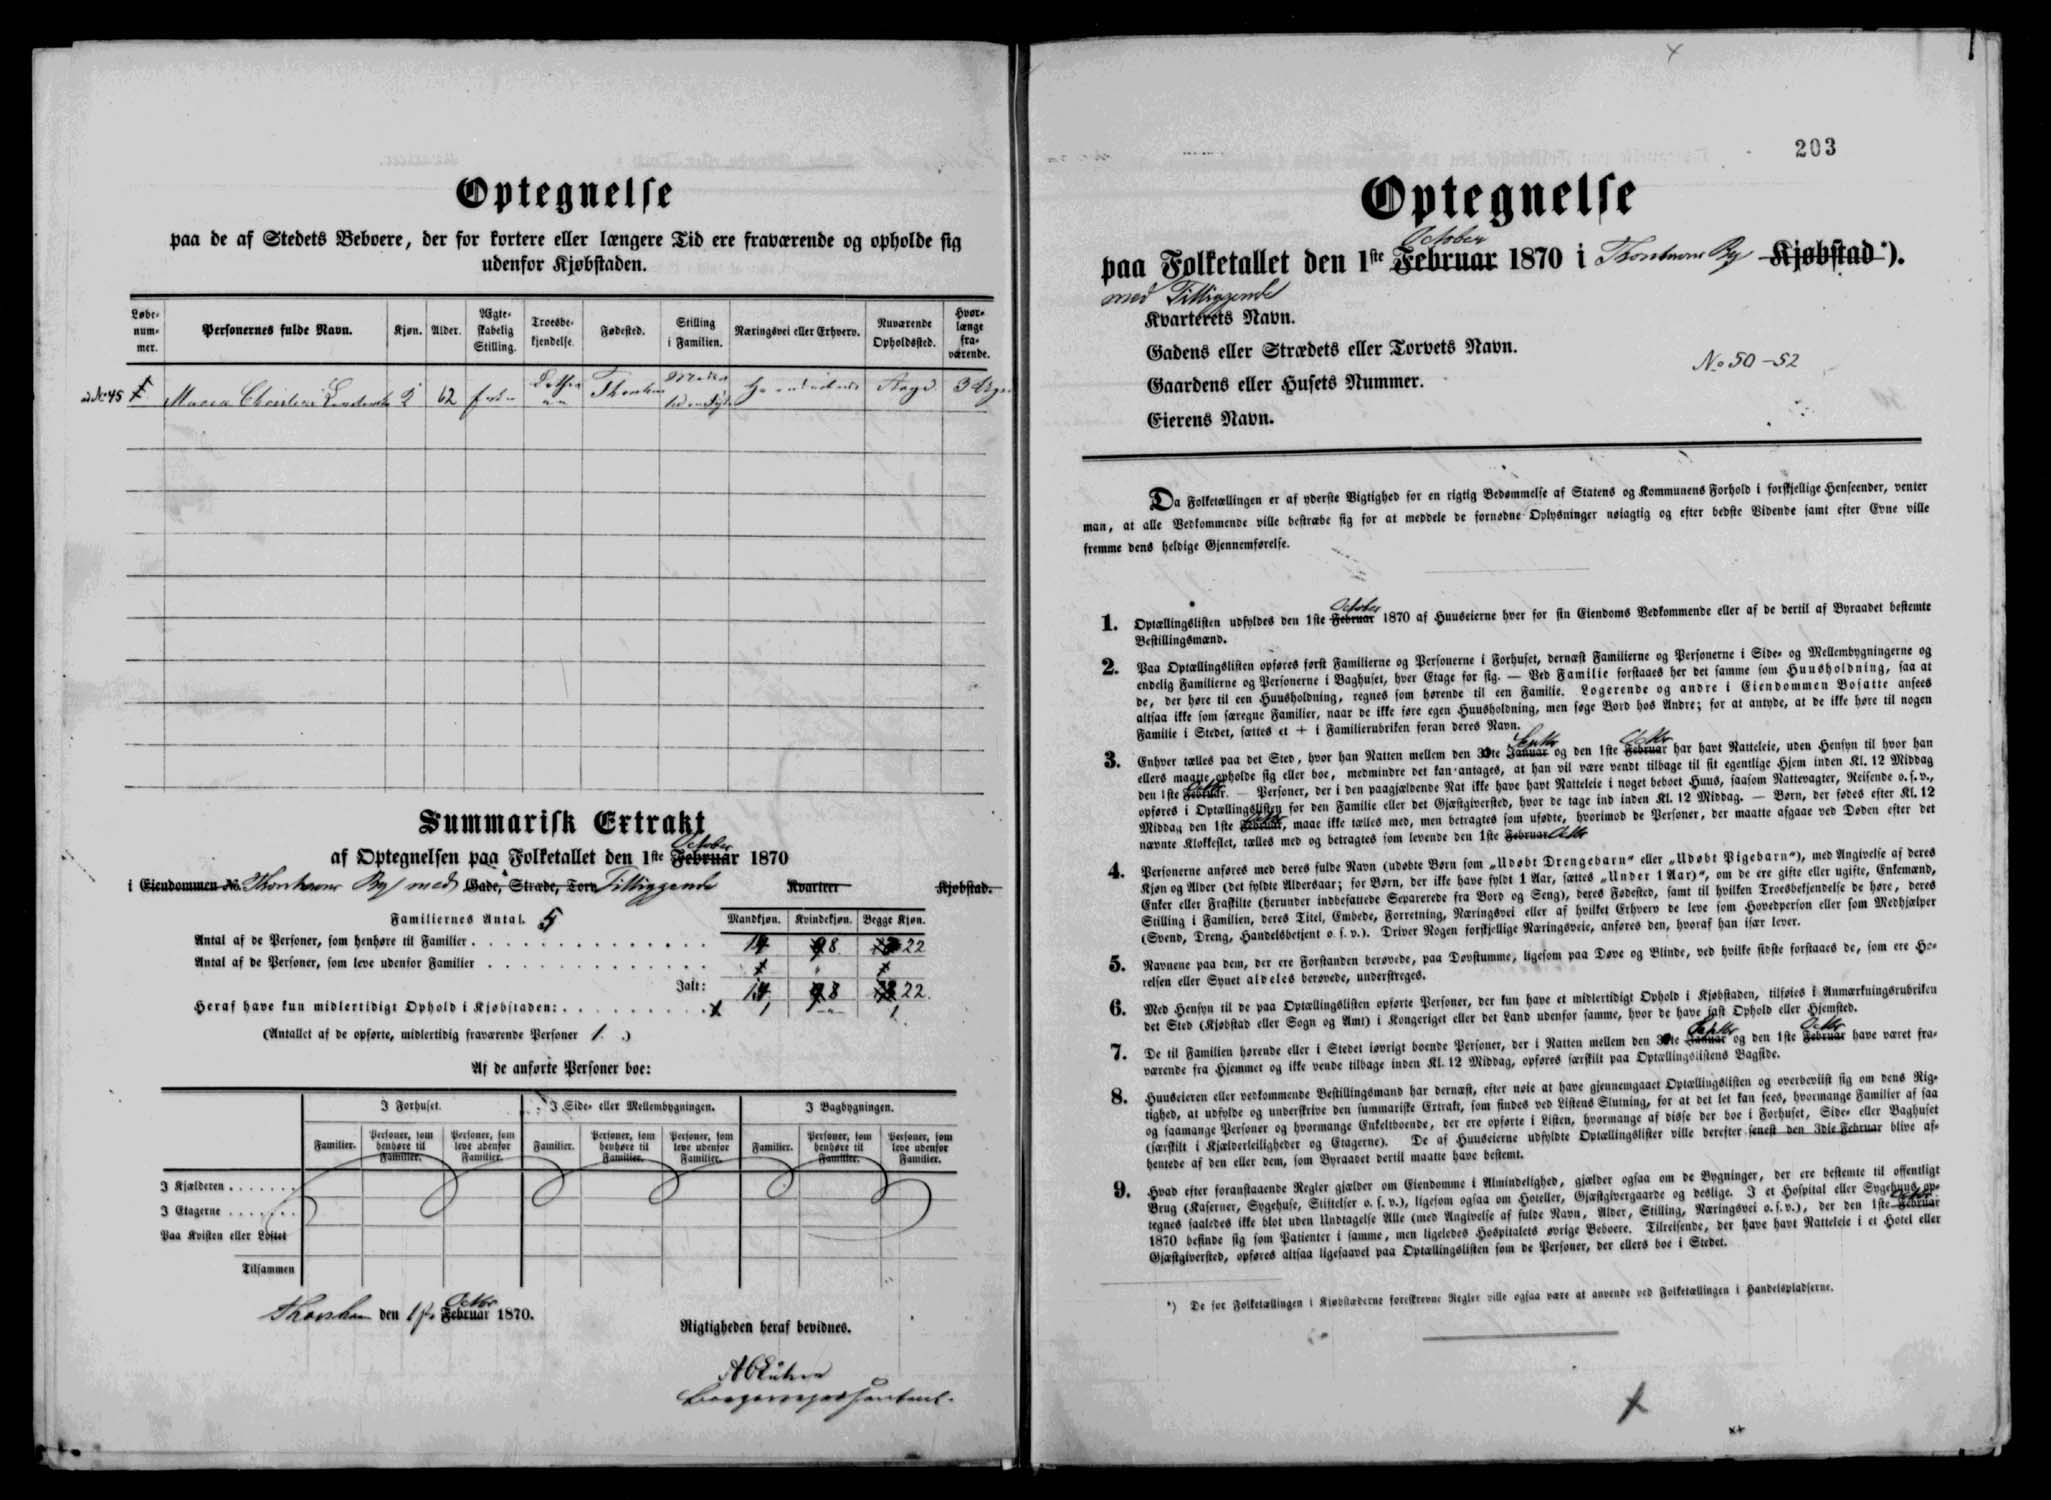 Optegnelse
paa de af Stedets Beboere, der for kortere eller længere Tid ere fraværende og opholde sig
udenfor Kjøbstaden.
Løbe-
num-
mer.
Personernes fulde Navn.
Kjøn.
Alder.
Ægte-
skabelig
Stilling.
Troesbe-
kjendelse.
Fødested.
Stilling
i Familien.
Næringsvei eller Erhverv.
Nuværende
Opholdssted.
Hvor-
længe
fra-
værende.
No 45 Maria K 62
Summarisk Extrakt
af Optegnelsen paa Folketallet den 1ste Februar October 1870
i Eiendommen No. Thorshavns By med Gade, Stræde, Torv Tilliggende Kvarteer Kjøbstad.
Familiernes Antal. 5
Mandkjøn. Kvindekjøn. Begge Kjøn.
Antal af de Personer, som henhøre til Familier 14 8 22
Antal af de Personer, som leve udenfor Familier
Ialt: 14 8 22.
Heraf have kun midlertidigt Ophold i Kjøbstaden: 1 1
(Antallet af de opførte, midlertidig fraværende Personer 1.)
Af de anførte Personer boe:
I Forhuset. I Side- eller Mellembygningen. I Bagbygningen.
Familier. Personer, som henhøre til Familier. Personer, som leve udenfor Familier. Familier. Personer, som henhøre til Familier. Personer, som leve udenfor Familier. Familier. Personer, som henhøre til Familier. Personer, som leve udenfor Familier.
I Kjælderen
I Etagerne
Paa Kvisten eller Loftet
Tilsammen
Thorshavn den 1ste Februar Octbr 1870.
Rigtigheden heraf bevidnes.
203
Optegnelse
paa Folketallet den 1ste Februar October 1870 i Thorshavns By Kjøbstad*).
med Tilliggende
Kvarterets Navn.
Gadens eller Strædets eller Torvets Navn.
No 50-52
Gaardens eller Husets Nummer.
Eierens Navn.
Da Folketællingen er af yderste Vigtighed for en rigtig Bedømmelse af Statens og Kommunens Forhold i forskjellige Henseender, venter
man, at alle Vedkommende ville bestræbe sig for at meddele de fornødne Oplysninger nøiagtig og efter bedste Vidende samt efter Evne ville
fremme dens heldige Gjennemførelse.
1. Optællingslisten udfyldes den 1ste Februar October 1870 af Huuseierne hver for sin Eiendoms Vedkommende eller af de dertil af Byraadet bestemte
Bestillingsmænd.
2. Paa Optællingslisten opføres først Familierne og Personerne i Forhuset, dernæst Familierne og Personerne i Side- og Mellembygningerne og
endelig Familierne og Personerne i Baghuset, hver Etage for sig. — Ved Familie forstaaes her det samme som Huusholdning, saa at
de, der høre til een Huusholdning, regnes som hørende til een Familie. Logerende og andre i Eiendommen Bosatte ansees
altsaa ikke som særegne Familier, naar de ikke føre egen Huusholdning, men søge Bord hos Andre; for at antyde, at de ikke høre til nogen
Familie i Stedet, sættes et + i Familierubriken foran deres Navn.
3. Enhver tælles paa det Sted, hvor han Natten mellem den 30te Januar Septbr og den 1ste Februar Octbr har havt Natteleie, uden Hensyn til hvor han
ellers maatte opholde sig eller boe, medmindre det kan antages, at han vil være vendt tilbage til sit egentlige Hjem inden Kl. 12 Middag
den 1ste Februar Octbr. — Personer, der i den paagjældende Nat ikke have havt Natteleie i noget beboet Huus, saasom Nattevagter, Reisende o. s. v.,
opføres i Optællingslisten for den Familie eller det Gjæstgiversted, hvor de tage ind inden Kl. 12 Middag. — Børn, der fødes efter Kl. 12
Middag den 1ste Februar Octbr, maae ikke tælles med, men betragtes som ufødte, hvorimod de Personer, der maatte afgaae ved Døden efter det
nævnte Klokkeslet, tælles med og betragtes som levende den 1ste Februar Octbr
4. Personerne anføres med deres fulde Navn (udøbte Børn som „Udøbt Drengebarn“ eller „Udøbt Pigebarn“), med Angivelse af deres
Kjøn og Alder (det fyldte Aldersaar; for Børn, der ikke have fyldt 1 Aar, sættes „Under 1 Aar)“, om de ere gifte eller ugifte, Enkemænd,
Enker eller Fraskilte (herunder indbefattede Separerede fra Bord og Seng), deres Fødested, samt til hvilken Troesbekjendelse de høre, deres
Stilling i Familien, deres Titel, Embede, Forretning, Næringsvei eller af hvilket Erhverv de leve som Hovedperson eller som Medhjælper
(Svend, Dreng, Handelsbetjent o. s. v.). Driver Nogen forskjellige Næringsveie, anføres den, hvoraf han især lever.
5. Navnene paa dem, der ere Forstanden berøvede, paa Døvstumme, ligesom paa Døve og Blinde, ved hvilke sidste forstaaes de, som ere Hø-
relsen eller Synet aldeles berøvede, understreges.
6. Med Hensyn til de paa Optællingslisten opførte Personer, der kun have et midlertidigt Ophold i Kjøbstaden, tilføies i Anmærkningsrubriken
det Sted (Kjøbstad eller Sogn og Amt) i Kongeriget eller det Land udenfor samme, hvor de have fast Ophold eller Hjemsted.
7. De til Familien hørende eller i Stedet iøvrigt boende Personer, der i Natten mellem den 30te Januar Septbr og den 1ste Februar Octbr have været fra-
værende fra Hjemmet og ikke vende tilbage inden Kl. 12 Middag, opføres særskilt paa Optællingslistens Bagside.
8. Huuseieren eller vedkommende Bestillingsmand har dernæst, efter nøie at have gjennemgaaet Optællingslisten og overbeviist sig om dens Rig-
tighed, at udfylde og underskrive den summariske Extrakt, som findes ved Listens Slutning, for at det let kan sees, hvormange Familier af saa
og saamange Personer og hvormange Enkeltboende, der ere opførte i Listen, hvormange af disse der boe i Forhuset, Side- eller Baghuset
(særskilt i Kjælderleiligheder og Etagerne). De af Huuseierne udfyldte Optællingslister ville derefter senest den 3die Februar blive af-
hentede af den eller dem, som Byraadet dertil maatte have bestemt.
9. Hvad efter foranstaaende Regler gjælder om Eiendomme i Almindelighed, gjælder ogsaa om de Bygninger, der ere bestemte til offentligt
Brug (Kaserner, Sygehuse, Stiftelser o. s. v.), ligesom ogsaa om Hoteller, Gjæstgivergaarde og deslige. I et Hospital eller Sygehuus op-
tegnes saaledes ikke blot uden Undtagelse Alle (med Angivelse af fulde Navn, Alder, Stilling, Næringsvei o. s. v.), der den 1ste Februar Octbr
1870 befinde sig som Patienter i samme, men ligeledes Hospitalets øvrige Beboere. Tilreisende, der have havt Natteleie i et Hotel eller
Gjæstgiversted, opføres altsaa ligesaavel paa Optællingslisten som de Personer, der ellers boe i Stedet.
*) De for Folketællingen i Kjøbstæderne foreskrevne Regler ville ogsaa være at anvende ved Folketællingen i Handelspladserne.